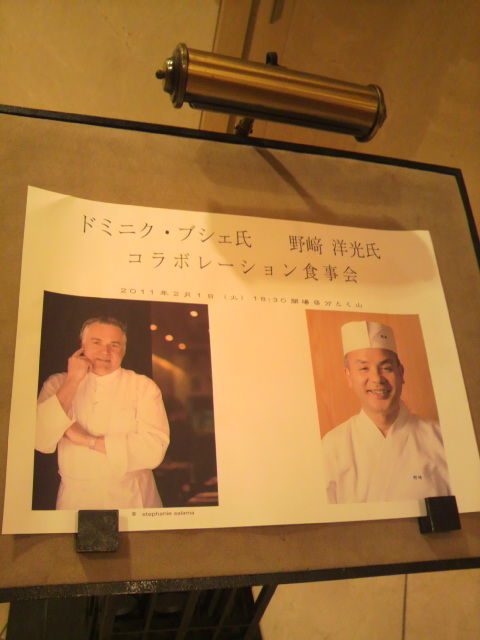 ドミニク・ブシェ氏　野﨑 洋光氏
コラボレーション食事会
2011年2月1日（火）18:30開場＠分とく山
© stephanie salama
野﨑